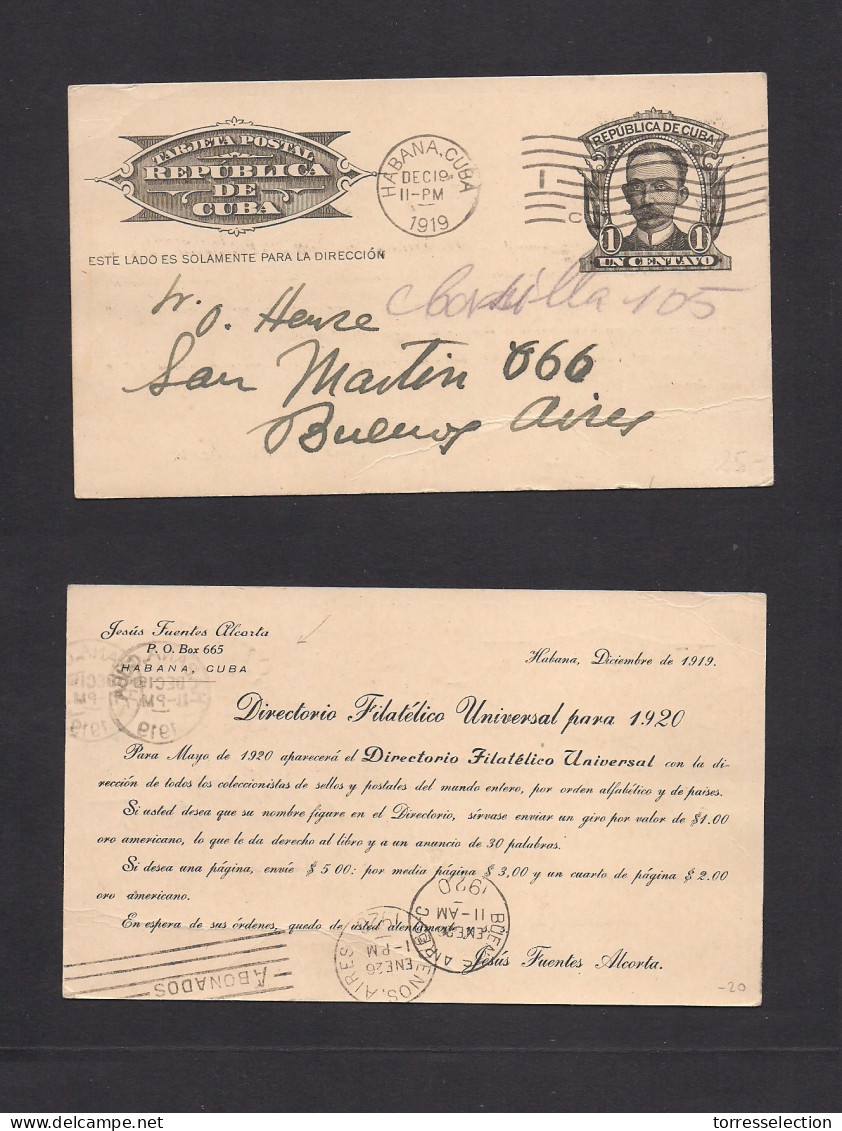 TARJETA POSTAL
REPÚBLICA
DE
CUBA
HABANA, CUBA
DEC 19
11-PM
1919
REPÚBLICA DE CUBA
1 1
UN CENTAVO
ESTE LADO ES SOLAMENTE PARA LA DIRECCIÓN
Casilla 105
O. Henze
San Martin 666
Buenos Aires
25-
Jesús Fuentes Alcorta
P. O. Box 665
HABANA, CUBA
Habana, Diciembre de 1919.
DEC 19
11-PM
1919
Directorio Filatélico Universal para 1920
Para Mayo de 1920 aparecerá el Directorio Filatélico Universal con la di-
rección de todos los coleccionistas de sellos y postales del mundo entero, por orden alfabético y de paises.
Si usted desea que su nombre figure en el Directorio, sírvase enviar un giro por valor de $1.00
oro americano, lo que le da derecho al libro y a un anuncio de 30 palabras.
Si desea una página, envíe $ 5 00: por media página $ 3,00 y un cuarto de página $ 2.00
oro americano.
En espera de sus órdenes, quedo de usted atentamente
Jesús Fuentes Alcorta.
ABONADOS
BUENOS AIRES
ENE 26
1-PM
1920
11-AM
1920
-20
torresselection